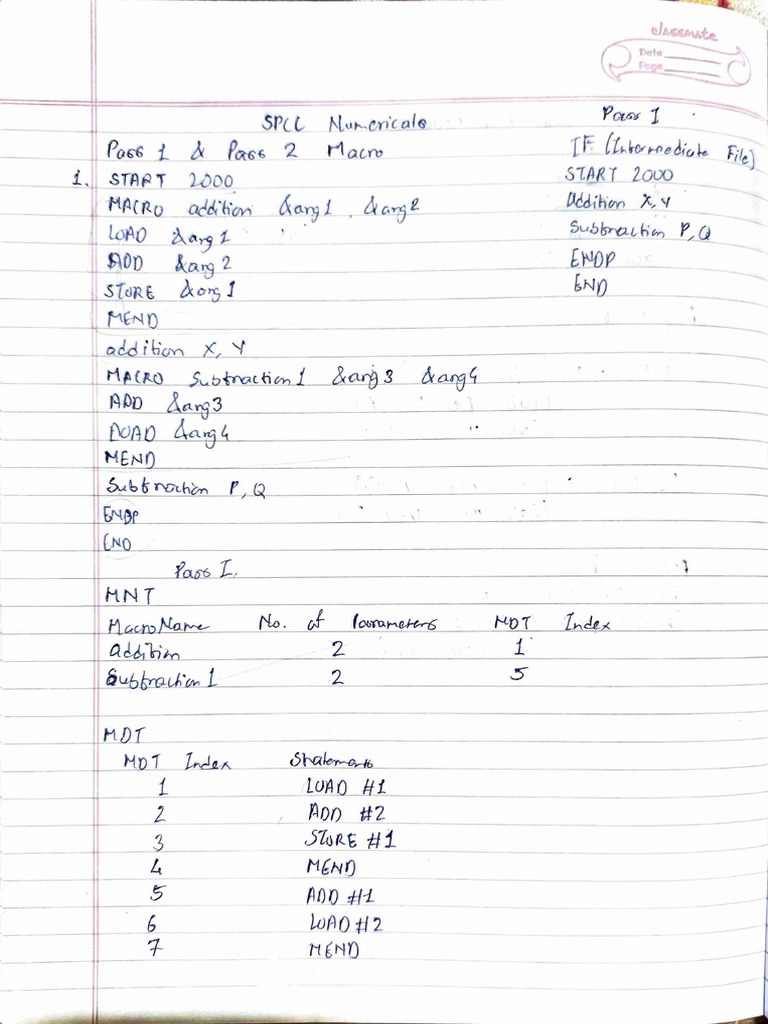 classmate
Date
Page
SPCC Numericals
Pass 1 & Pass 2 Macro
1. START 2000
MACRO addition &arg1, &arg2
LOAD &arg1
ADD &arg2
STORE &arg1
MEND
addition X, Y
MACRO Subtraction1 &arg3 &arg4
ADD &arg3
LOAD &arg4
MEND
Subtraction P, Q
ENDP
END
Pass I
IF (Intermediate File)
START 2000
Addition X, Y
Subtraction P, Q
ENDP
END
Pass I.
MNT
MacroName No. of Parameters MDT Index
Addition 2 1
Subtraction1 2 5
MDT
MDT Index Statements
1 LOAD #1
2 ADD #2
3 STORE #1
4 MEND
5 ADD #1
6 LOAD #2
7 MEND